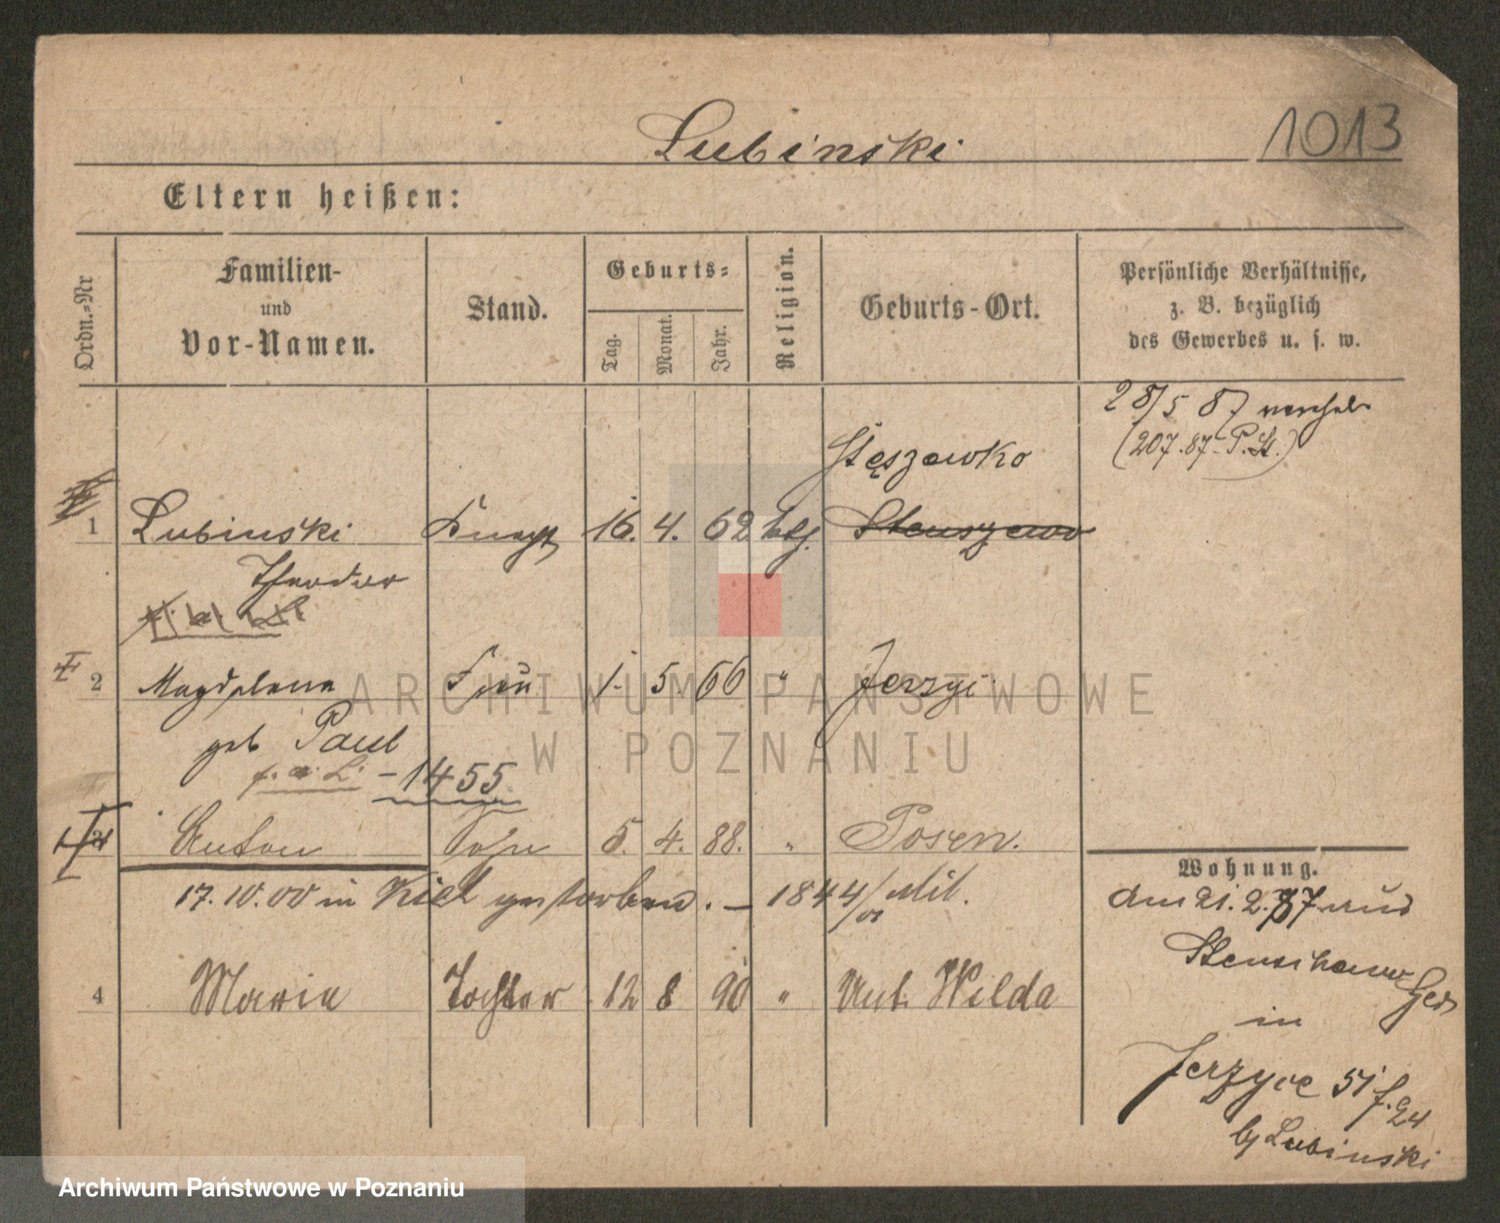 Lubinski 1013
Eltern heißen:
Ordn.=Nr
Familien-
und
Vor-Namen.
Stand.
Geburts=
Tag.
Monat.
Jahr.
Religion.
Geburts-Ort.
Persönliche Verhältnisse,
z. B. bezüglich
des Gewerbes u. s. w.
28/5 87
(207.87. P. St.)
Stęszewko
1 Lubinski 16. 4. 62 Stenszewo
Theodor
2 Magdalena Frau 1. 5. 66 " Jerzyc
geb Paul
f. a. L. - 1455
Anton Sohn 5. 4. 88. " Posen.
17. 10. 00 in Kiel gestorben. - 1844/01 Mil.
4 Maria Tochter 12 8 90 " Unt. Wilda
Wohnung.
am 21. 2. 87 aus
in
Jerzyce 51 f. 24
by Lubinski
ARCHIWUM PAŃSTWOWE
W POZNANIU
Archiwum Państwowe w Poznaniu